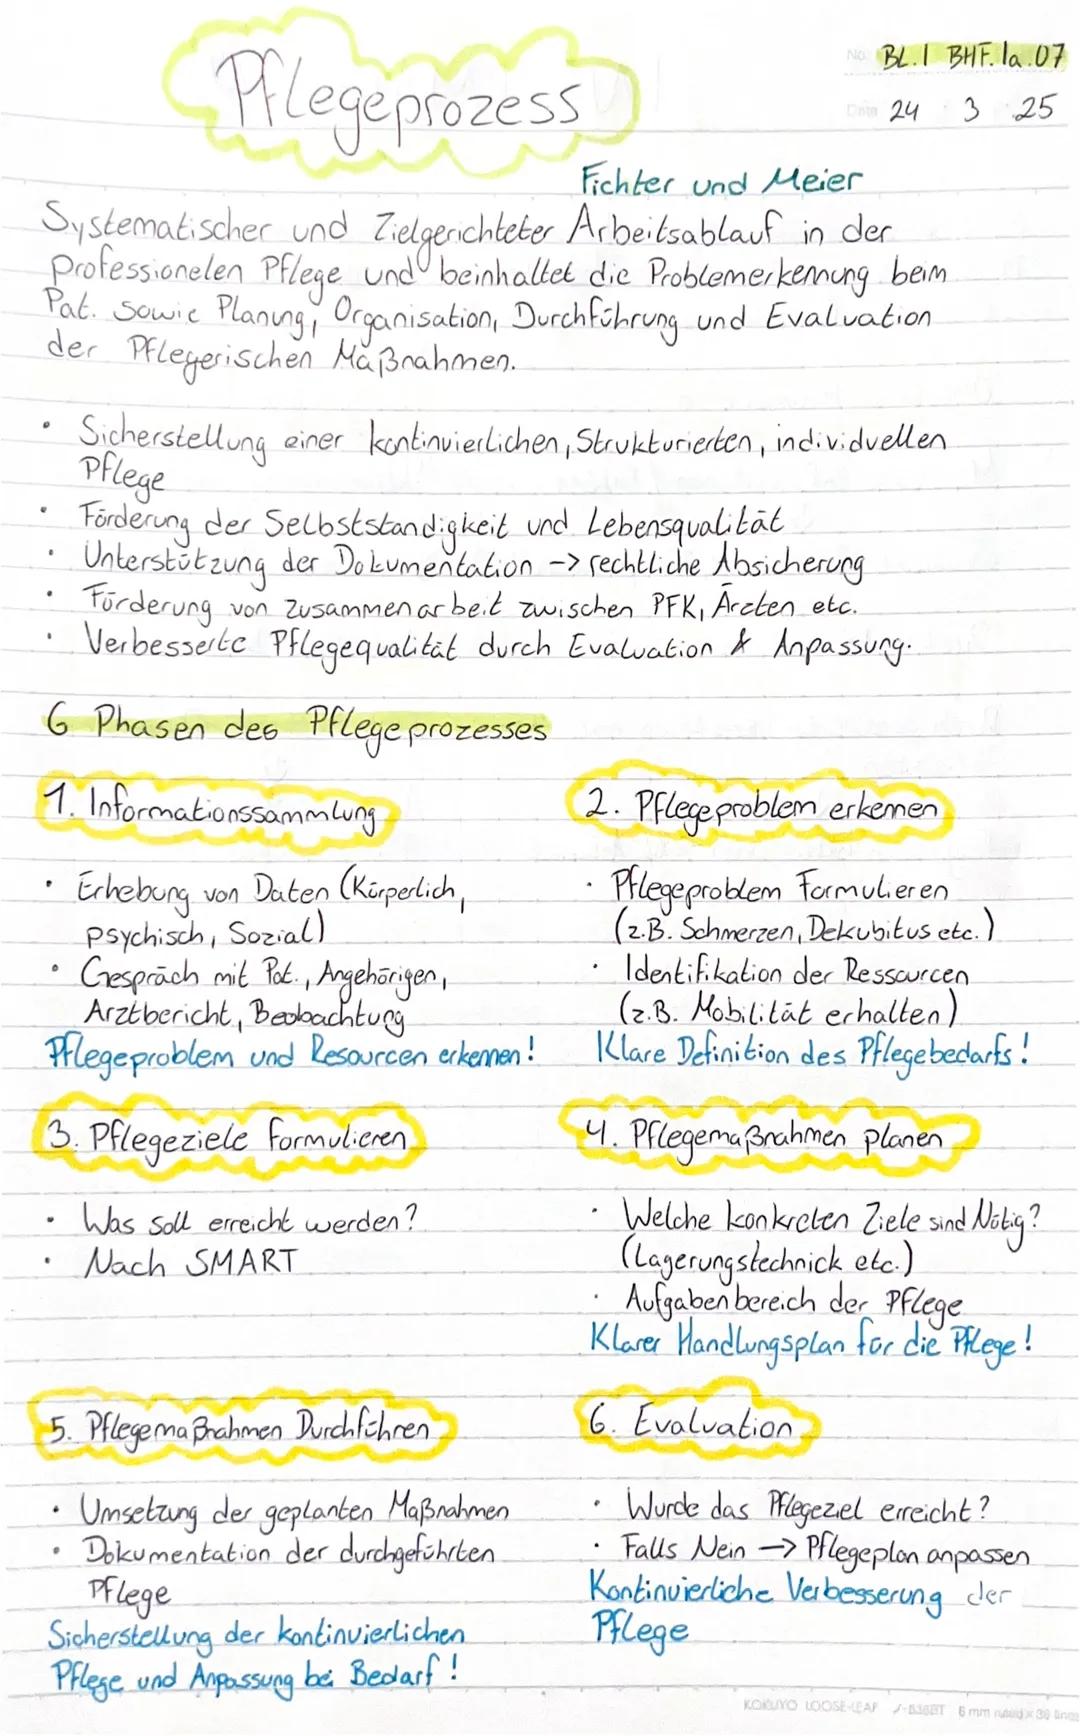 Pflegeprozess
No. BL.1 BHF.1a.07
Date 24 3 .25
Fichter und Meier
Systematischer und Zielgerichteter Arbeitsablauf in der
professionelen Pflege und beinhaltet die Problemerkennung beim
Pat. sowie Planung, Organisation, Durchführung und Evaluation
der Pflegerischen Maßnahmen.
• Sicherstellung einer kontinuierlichen, Strukturierten, individuellen
Pflege
• Förderung der Selbstständigkeit und Lebensqualität
• Unterstützung der Dokumentation -> rechtliche Absicherung
• Förderung von zusammenarbeit zwischen PFK, Ärzten etc.
• Verbesserte Pflegequalität durch Evaluation & Anpassung.
6 Phasen des Pflegeprozesses
1. Informationssammlung
• Erhebung von Daten (Körperlich,
psychisch, Sozial)
• Gespräch mit Pat., Angehörigen,
Arztbericht, Beobachtung
Pflegeproblem und Resourcen erkennen!
2. Pflegeproblem erkennen
• Pflegeproblem Formulieren
(z.B. Schmerzen, Dekubitus etc.)
• Identifikation der Ressourcen
(z.B. Mobilität erhalten)
Klare Definition des Pflegebedarfs!
3. Pflegeziele formulieren
• Was soll erreicht werden?
• Nach SMART
4. Pflegemaßnahmen planen
• Welche konkreten Ziele sind Nötig?
(Lagerungstechnick etc.)
• Aufgabenbereich der Pflege
Klarer Handlungsplan für die Pflege!
5. Pflegemaßnahmen Durchführen
• Umsetzung der geplanten Maßnahmen
• Dokumentation der durchgeführten
Pflege
Sicherstellung der kontinuierlichen
Pflege und Anpassung bei Bedarf!
6. Evaluation
• Wurde das Pflegeziel erreicht?
• Falls Nein -> Pflegeplan anpassen
Kontinuierliche Verbesserung der
Pflege
KOKUYO LOOSE-LEAF 6 mm ruled × 36 lines